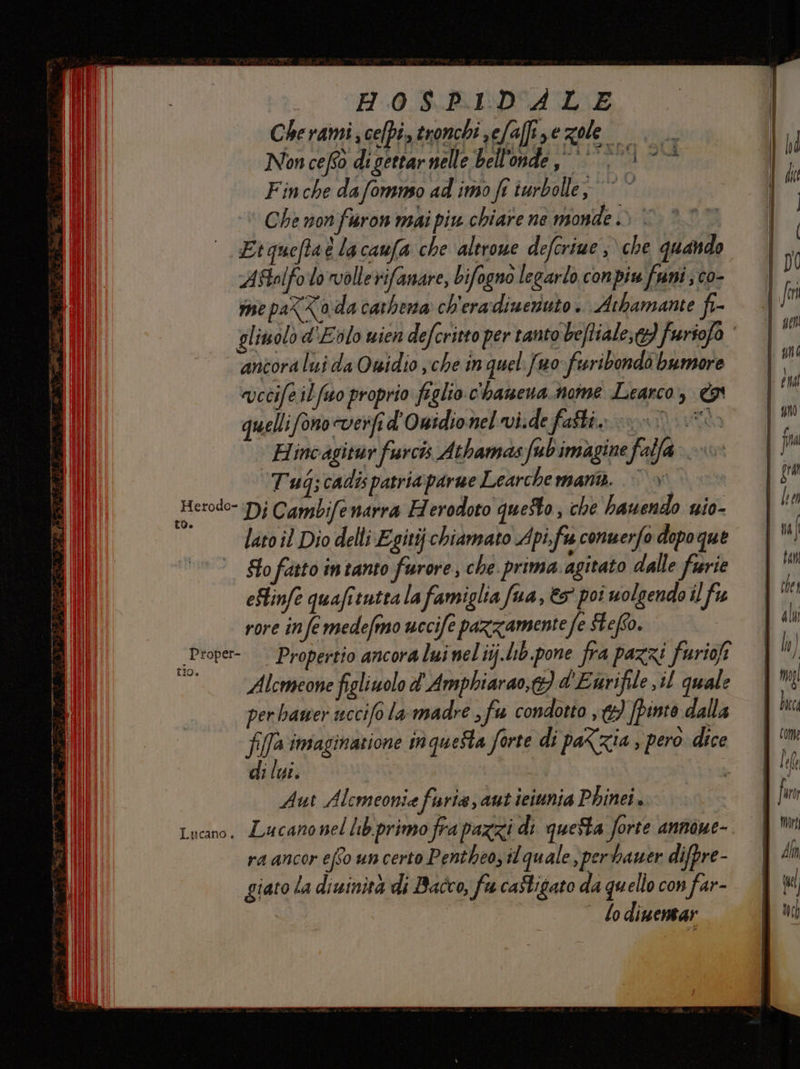 HOSPIDALE
Che rami, ceſpi, tronchi, e ſaſſi, e zole
Non ceſſò di gettar nelle bell'onde,
Fin che da ſommo ad imo ſi turbolle,
Che non furon mai piu chiare ne monde.
Et queſta è la cauſa che altroue deſcriue, che quando
Aſtolfo lo volle riſanare, biſognò legarlo con piu funi, co-
me pazzo da cathena ch'era diuenuto. Athamante fi-
gliuolo d'Eolo uien deſcritto per tanto beſtiale, & furioſo
ancora lui da Ouidio, che in quel ſuo furibondo humore
vcciſe il ſuo proprio figlio c'haueua nome Learco, &
quelli ſono verſi d'Ouidio nel vi. de faſti.
Hinc agitur furcis Athamas ſub imagine falſa
Tuq; cadis patria parue Learche manu.
Herodo-
to.
Di Cambiſe narra Herodoto queſto, che hauendo uio-
lato il Dio delli Egitij chiamato Api, fu conuerſo dopo que
ſto fatto in tanto furore, che prima agitato dalle furie
eſtinſe quaſi tutta la famiglia ſua, & poi uolgendo il fu
rore in ſe medeſmo ucciſe pazzamente ſe ſteſſo.
Proper-
tio.
Propertio ancora lui nel iij. lib. pone fra pazzi furioſi
Alcmeone figliuolo d'Amphiarao, & d'Eurifile, il quale
per hauer ucciſo la madre, fu condotto, & ſpinto dalla
fiſſa imaginatione in queſta ſorte di pazzia, però dice
di lui.
Aut Alcmeoniæ furiæ, aut ieiunia Phinei.
Lucano.
Lucano nel lib. primo fra pazzi di queſta ſorte annoue-
ra ancor eſſo un certo Pentheo, il quale, per hauer diſpre-
giato la diuinità di Bacco, fu caſtigato da quello con far-
lo diuentar